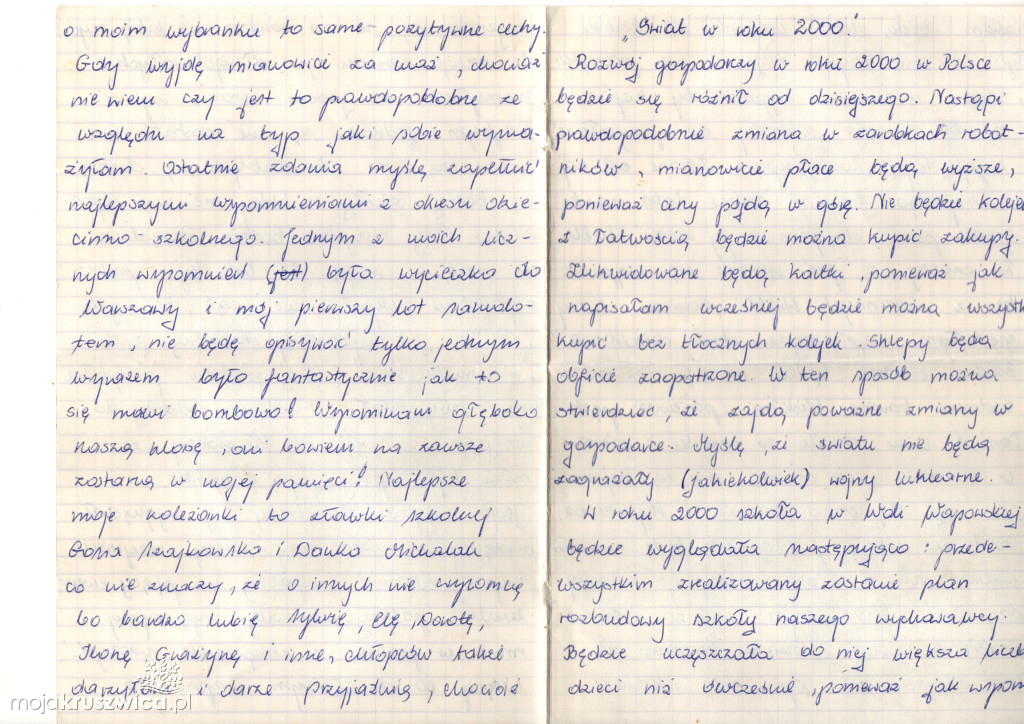 o moim wybranku to same pozytywne cechy.
Gdy wyjdę mianowicie za mąż, chociaż
nie wiem czy jest to prawdopodobne ze
względu na typ jaki sobie wyma-
rzyłam. Ostatnie zdania myślę zapełnić
najlepszymi wypomnieniami z okresu dzie-
cinno szkolnego. Jednym z moich licz-
nych wspomnień (jest) była wycieczka do
Warszawy i mój pierwszy lot samolo-
tem, nie będę opisywać tylko jednym
wyrazem było fantastycznie jak to
się mówi bombowo! Wspominam głęboko
naszą klasę, oni bowiem na zawsze
zostaną w mojej pamięci! Najlepsze
moje koleżanki to z ławki szkolnej
Gosia i Danka Michalak
co nie znaczy, że o innych nie wspomnę
bo bardzo lubię Sylwię, Elę, Dorotę,
Ilonę Grażynę i inne, chłopców także
darzyłam i darzę przyjaźnią, chociaż
„Świat w roku 2000".
Rozwój gospodarczy w roku 2000 w Polsce
będzie się różnił od dzisiejszego. Nastąpi
prawdopodobnie zmiana w zarobkach robot-
ników, mianowicie płace będą wyższe,
ponieważ ceny pójdą w górę. Nie będzie kolejek
z łatwością będzie można kupić zakupy.
Zlikwidowane będą kartki, ponieważ jak
napisałam wcześniej będzie można wszystk
kupić bez tłocznych kolejek. Sklepy będą
obficie zaopatrzone. W ten sposób można
stwierdzić, że zajdą poważne zmiany w
gospodarce. Myślę, że światu nie będą
zagrażały (jakiekolwiek) wojny nuklearne.
W roku 2000 szkoła w Woli Wapowskiej
będzie wyglądała następująco: przede-
wszystkim zrealizowany zostanie plan
rozbudowy szkoły naszego wychowawcy.
Będzie uczęszczała do niej większa liczb
dzieci niż ówcześnie, ponieważ jak wspom
mojakruszwica.pl